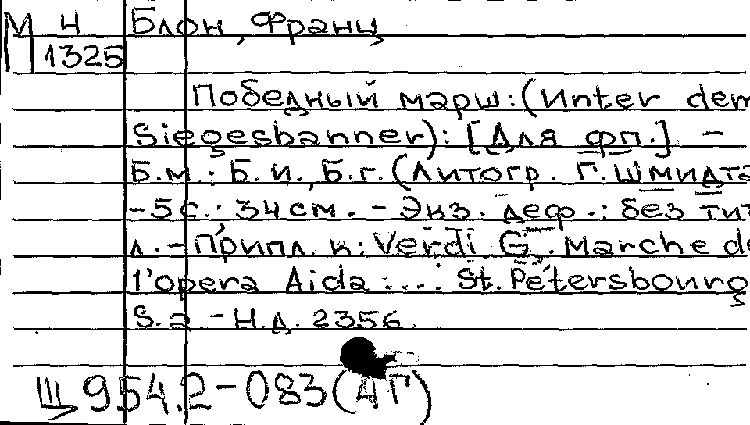 М Ч Блон, Франц
П 1325
Победный марш: (Unter dem
Siegesbanner): [Для фп.] -
Б.м.: Б.и., Б.г. (Литогр. Г. Шмидта
-5с.: 34см. - Экз. деф.: без тит
л. - Припл. к: Verdi G. Marche de
l'opera Aida :... St. Pétersbourg
S.a - Н.Д. 2356.
Щ 954.2-083(4Г)